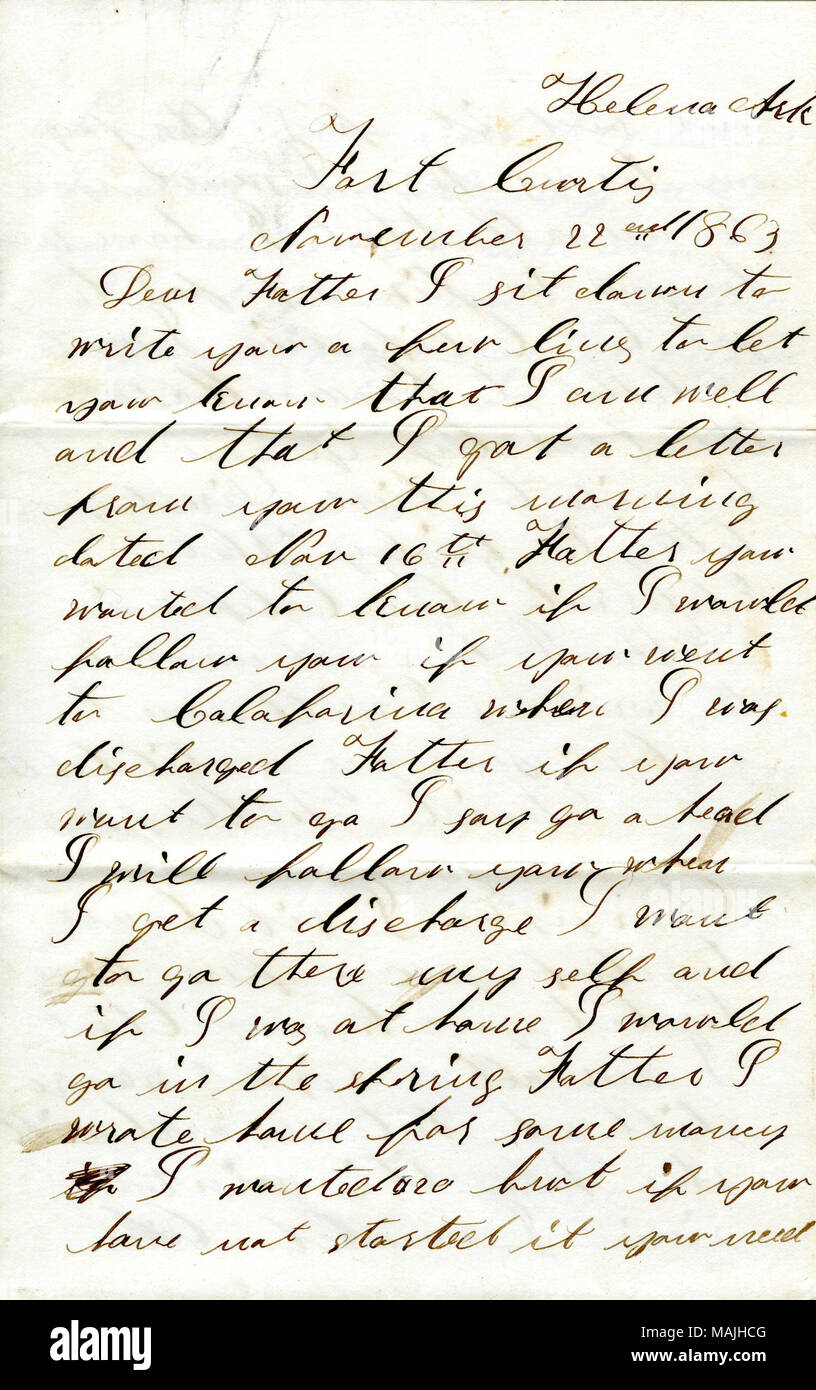 Helena Ark
Fort Curtis
November 22nd 1863
Dear Father I sit down to
write you a few lines to let
you know that I am well
and that I got a letter
from you this morning
dated Nov 16th Father you
wanted to know if I would
follow you if you went
to Calafornia when I was
discharged Father if you
want to go I say go a head
I will follow you when
I get a discharge I want
to go there my self and
if I was at home I would
go in the spring Father I
wrote home for some money
I wanted but if you
have not started it you need
alamy
Image ID: MAJHCG
www.alamy.com